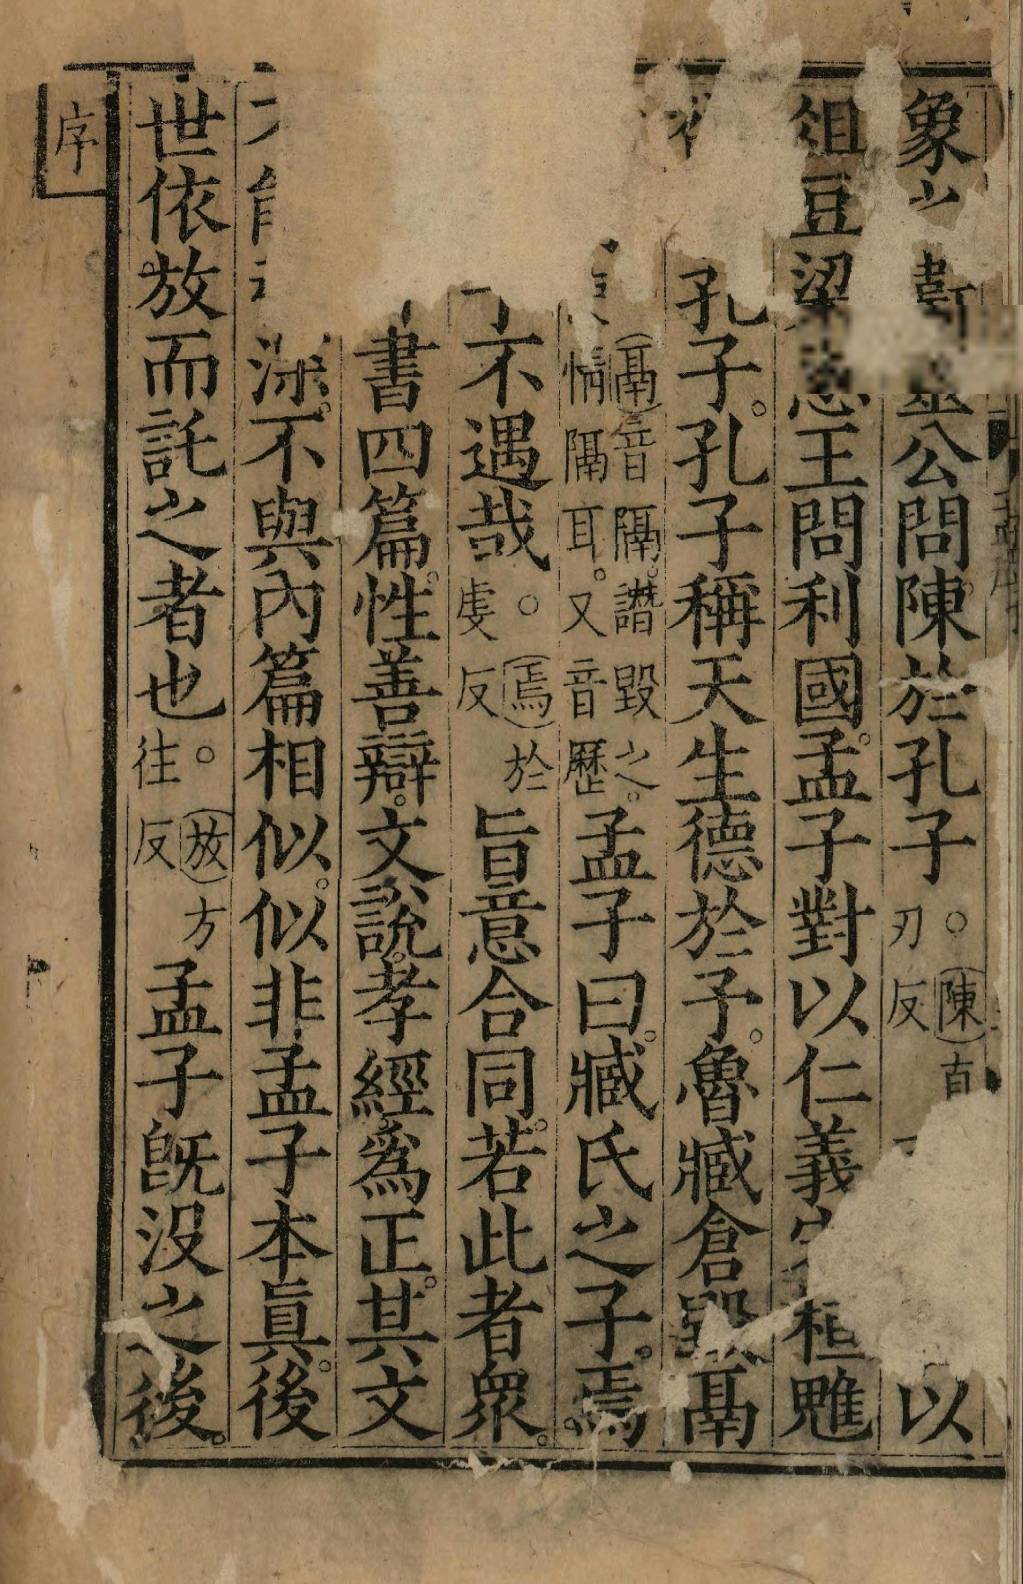 象之衛靈公問陳於孔子。陳直刃反以
俎豆梁惠王問利國。孟子對以仁義宋桓魋
孔子。孔子稱天生德於予。魯臧倉毀鬲
鬲音隔。譖毀之。情隔耳。又音歷孟子曰。臧氏之子。焉
不遇哉。焉於虔反旨意合同。若此者衆。
書四篇。性善辯。文說。孝經爲正。其文
深。不與內篇相似。似非孟子本眞。後
世依放而託之者也。放方往反孟子旣沒之後。
序